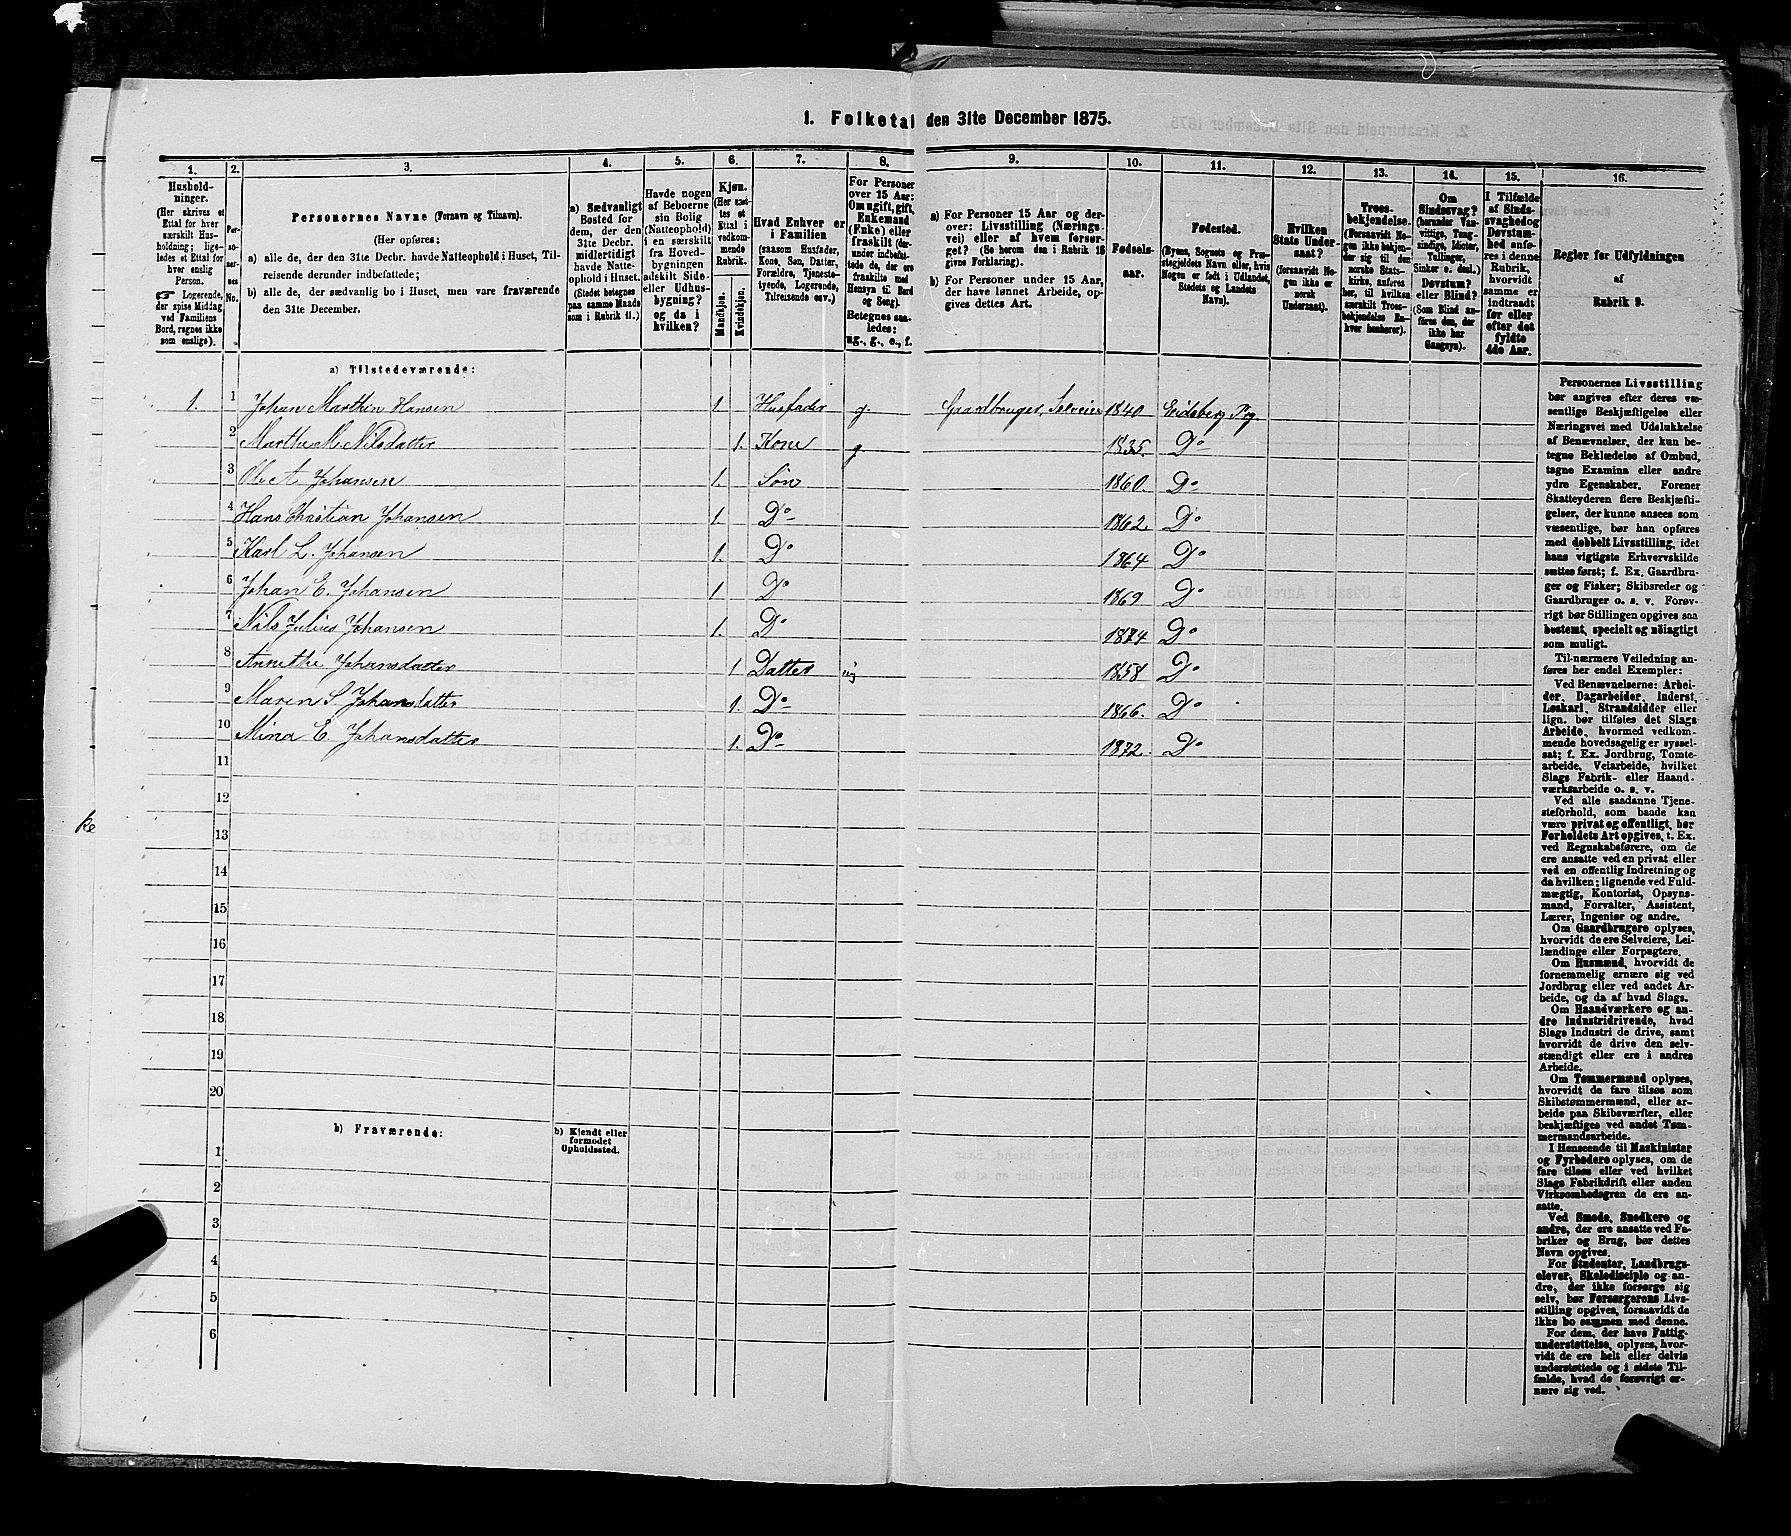 1. Folketal den 31te December 1875.
1. 2. 3. 4. 5. 6. 7. 8. 9. 10. 11. 12. 13. 14. 15. 16.
Hushold-
ninger.
(Her skrives et
Ettal for hver
særskilt Hus-
holdning; lige-
ledes et Ettal for
hver enslig
Person.
☞ Logerende,
der spise Middag
ved Familiens
Bord, regnes ikke
som enslige).
Per-
so-
ner-
nes
No.
Personernes Navne (Fornavn og Tilnavn).
(Her opføres:
a) alle de, der den 31te Decbr. havde Natteophold i Huset, Til-
reisende derunder indbefattede;
b) alle de, der sædvanlig bo i Huset, men vare fraværende
den 31te December.
a) Sædvanligt
Bosted for
dem, der den
31te Decbr.
midlertidigt
havde Natte-
ophold i Huset.
(Stedet betegnes
paa samme Maade
som i Rubrik 11.)
Havde nogen
af Beboerne
sin Bolig
(Natteophold)
i en særskilt
fra Hoved-
bygningen
adskilt Side-
eller Udhus-
bygning?
og da i
hvilken?
Kjøn.
(Her sæt-
tes et
Ettal i
vedkom-
mende
Rubrik.
Mandkjøn.
Kvindekjøn.
Hvad Enhver er
i Familien
(saasom Husfader,
Kone, Søn, Datter,
Forældre, Tjeneste-
tyende, Logerende,
Tilreisende osv.)
For Personer
over 15 Aar:
Om ugift, gift,
Enkemand
(Enke) eller
fraskilt (der-
under indbefat-
tede de, der ere
fraskilte med
Hensyn til Bord
og Seng).
Betegnes saa-
ledes:
ug., g., e., f.
a) For Personer 15 Aar og der-
over: Livsstilling (Nærings-
vei) eller af hvem forsør-
get? (Se herom den i Rubrik 16
givne Forklaring).
b) For Personer under 15 Aar,
der have lønnet Arbeide, op-
gives dettes Art.
Fødsels-
aar.
Fødested.
(Byens, Sognets og Præ-
stegjeldets Navn eller, hvis
Nogen er født i Udlandet,
Stedets og Landets
Navn).
Hvilken
Stats Under-
saat?
(forsaavidt No-
gen ikke er
norsk
Undersaat).
Troes-
bekjendelse.
(Forsaavidt No-
gen ikke bekjen-
der sig til den
norske Stats-
kirke, anføres
her, til hvilken
særskilt Troes-
bekjendelse En-
hver henhører).
Om
Sindssvag?
(herunder Van-
vittige, Tung-
sindige, Idioter,
Tullinger,
Sinker o. desl.)
Døvstum?
eller Blind?
(Som Blind an-
føres den, der
ikke har
Gangsyn).
I Tilfælde
af Sinds-
svaghed og
Døvstum-
hed anfø-
res i denne
Rubrik,
hvorvidt
samme er
indtraadt
før eller
efter det
fyldte
4de Aar.
Regler for Udfyldningen
af
Rubrik 9.
a) Tilstedeværende:
1. 1 Johan Marthin Hansen 1. Husfader g. Gaardbruger, Selveier 1840 Eidsberg Prg.
2 Marthe M. Nilsdatter 1. Kone g 1835. Do
3 Ole A. Johansen 1. Søn 1860. Do
4 Hans Christian Johansen 1. Do 1862. Do
5 Karl L. Johansen 1. Do 1864 Do
6 Johan E. Johansen 1 Do 1869 Do
7 Nils Julius Johansen 1. Do 1874 Do
8 Annethe Johansdatter 1 Datter ug 1858 Do
9 Maren S. Johansdatter 1. Do 1866. Do
10 Mina E. Johansdatter 1. Do 1872. Do
11
12
13
14
15
16
17
18
19
20
b) Fraværende:
b) Kjendt eller
formodet
Opholdssted.
1
2
3
4
5
6
Personernes Livsstilling
bør angives efter deres væ-
sentlige Beskjæftigelse eller
Næringsvei med Udelukkelse
af Benævnelser, der kun be-
tegne Beklædelse af Ombud,
tagne Examina eller andre
ydre Egenskaber. Forener
Skatteyderen flere Beskjæfti-
gelser, der kunne ansees som
væsentlige, bør han opføres
med dobbelt Livsstilling, idet
hans vigtigste Erhvervskilde
sættes først; f. Ex. Gaardbru-
ger og Fisker; Skibsreder og
Gaardbruger o. s. v. Forøv-
rigt bør Stillingen opgives saa
bestemt, specielt og nöiagtigt
som muligt.
Til nærmere Veiledning an-
føres her endel Exempler:
Ved Benævnelserne: Arbei-
der, Dagarbeider, Inderst,
Løskarl, Strandsidder eller
lign. bør tilføies det Slags
Arbeide, hvormed vedkom-
mende hovedsagelig er syssel-
sat; f. Ex. Jordbrug, Tomte-
arbeide, Veiarbeide, hvilket
Slags Fabrik- eller Haand-
værksarbeide o. s. v.
Ved alle saadanne Tjene-
steforhold, som baade kan
være privat og offentligt, bør
Forholdets Art opgives, t. Ex.
ved Regnskabsførere, om de
ere ansatte ved en privat eller
ved en offentlig Indretning og
da hvilken; lignende ved Fuld-
mægtig, Kontorist, Opsyns-
mand, Forvalter, Assistent,
Lærer, Ingeniør og andre.
Om Gaardbrugere oplyses,
hvorvidt de ere Selveiere, Lei-
lændinge eller Forpagtere.
Om Husmænd, hvorvidt de
fornemmelig ernære sig ved
Jordbrug eller ved andet Ar-
beide, og da af hvad Slags.
Om Haandværkere og an-
dre Industridrivende, hvad
Slags Industri de drive, samt
hvorvidt de drive den selv-
stændigt eller ere i andres
Arbeide.
Om Tømmermænd oplyses,
hvorvidt de fare tilsøs som
Skibstømmermænd, eller ar-
beide paa Skibsværfter, eller
beskjæftiges ved andet Tøm-
mermandsarbeide.
I Henseende til Maskinister
og Fyrbødere oplyses, om de
fare tilsøs eller ved hvilket
Slags Fabrikdrift eller anden
Virksomhedsgren de ere an-
satte.
Ved Smede, Snedkere og
andre, der ere ansatte ved Fa-
briker og Brug, bør dettes
Navn opgives.
For Studenter, Landbrugs-
elever, Skoledisciple og an-
dre, der ikke forsørge sig
selv, bør Forsørgerens Livs-
stilling opgives, forsaavidt de
ikke bo sammen med denne.
For dem, der have Fattig-
understøttelse, oplyses, hvor-
vidt de ere helt eller delvis
understøttede og i sidste Til-
fælde, hvad de forøvrigt er-
nære sig ved.